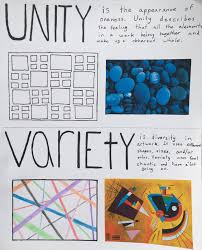 UNITY
is the appearance of
oneness. Unity describes
the feeling that all the elements
in a work belong together and
make up a coherent whole.
VARIETY
is diversity in
artwork. It uses different
shapes, sizes, and/or
color. Variety can feel
chaotic and have a lot
going on.